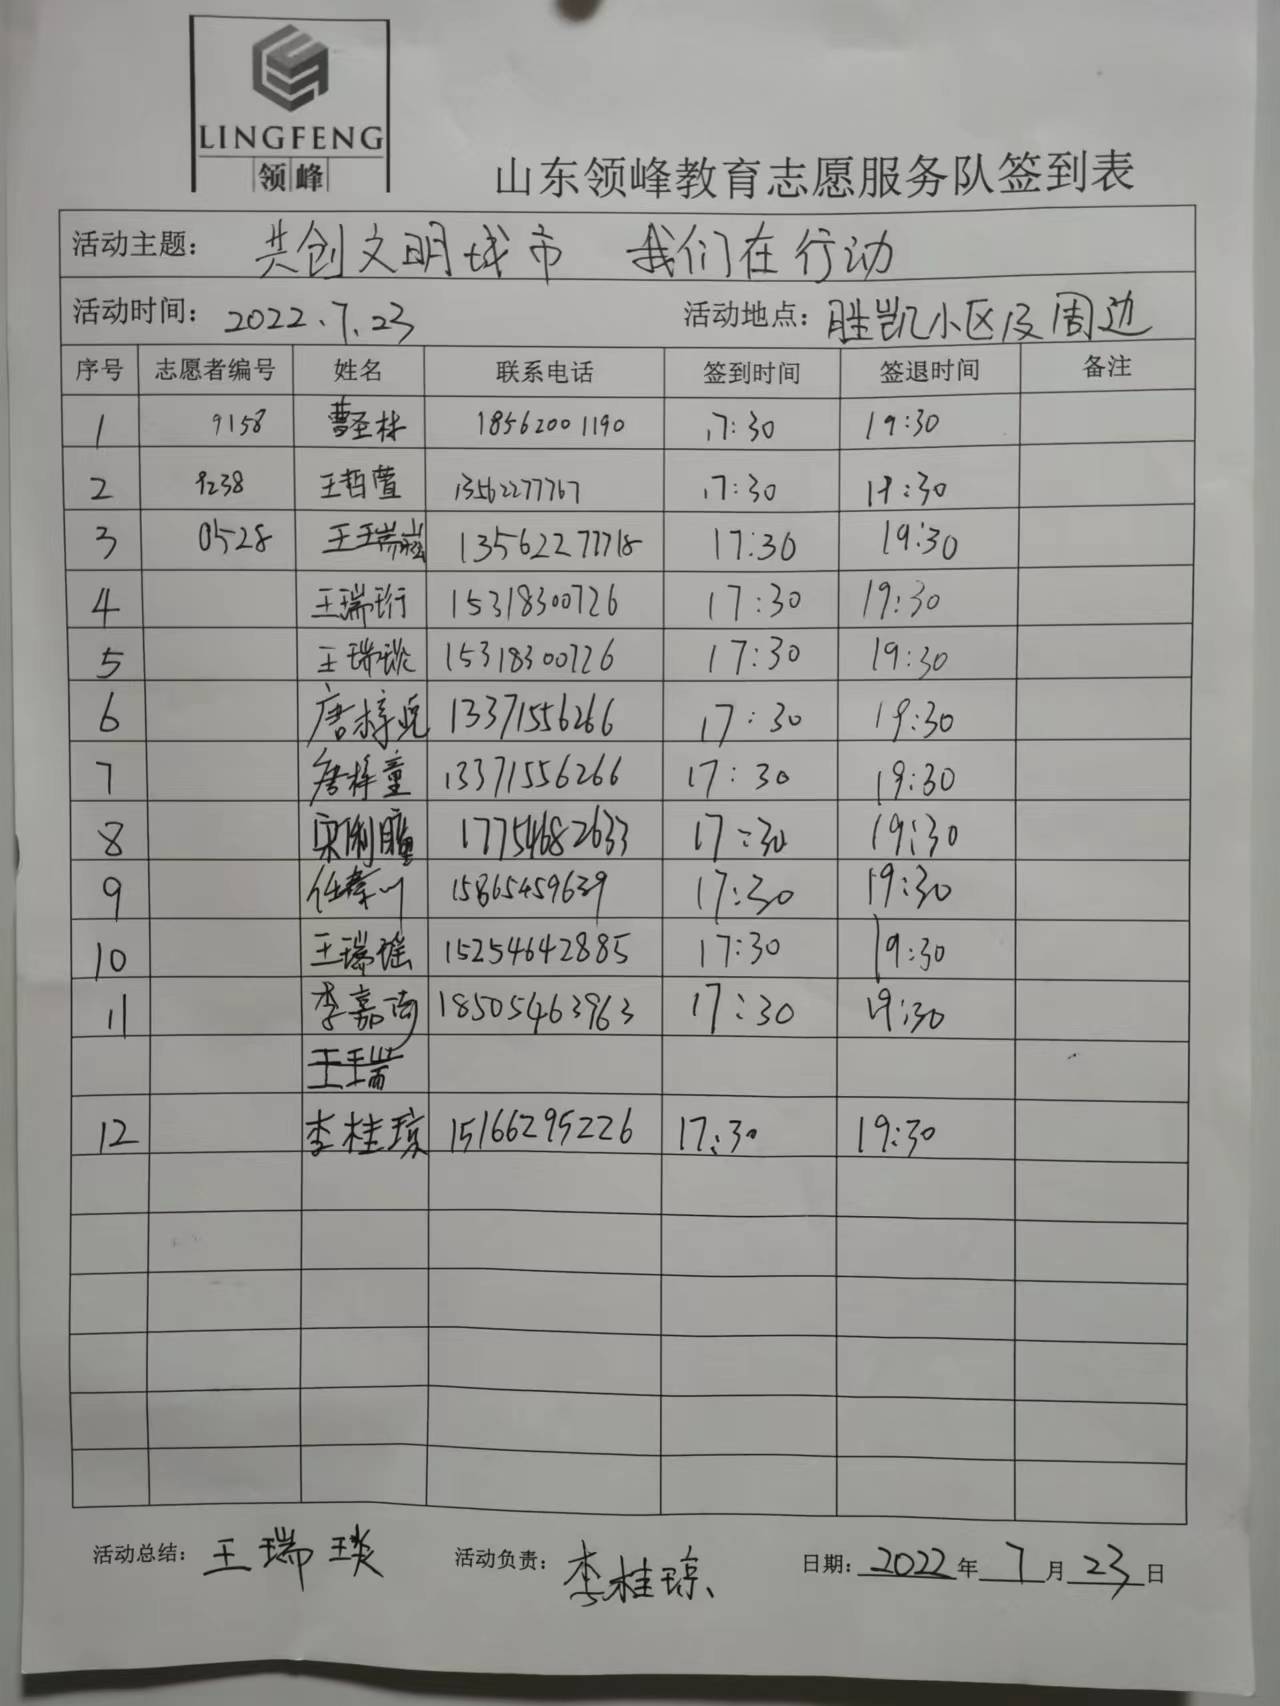 LINGFENG
领峰
山东领峰教育志愿服务队签到表
活动主题： 共创文明城市 我们在行动
活动时间： 2022.7.23 活动地点： 胜凯小区及周边
序号 志愿者编号 姓名 联系电话 签到时间 签退时间 备注
1 9158 曹圣林 18562001190 17:30 19:30
2 9238 王哲萱 13562277767 17:30 19:30
3 0528 王瑞 13562277718 17:30 19:30
4 王瑞珩 15318300726 17:30 19:30
5 王瑞琰 15318300726 17:30 19:30
6 唐梓 13371556266 17:30 19:30
7 唐梓童 13371556266 17:30 19:30
8 宋俐瞳 17754682633 17:30 19:30
9 任 15865459639 17:30 19:30
10 王瑞瑶 15254642885 17:30 19:30
11 李嘉 18505463963 17:30 19:30
王瑞
12 李桂琼 15166295226 17:30 19:30
活动总结： 王瑞琰 活动负责： 李桂琼 日期： 2022 年 7 月 23 日